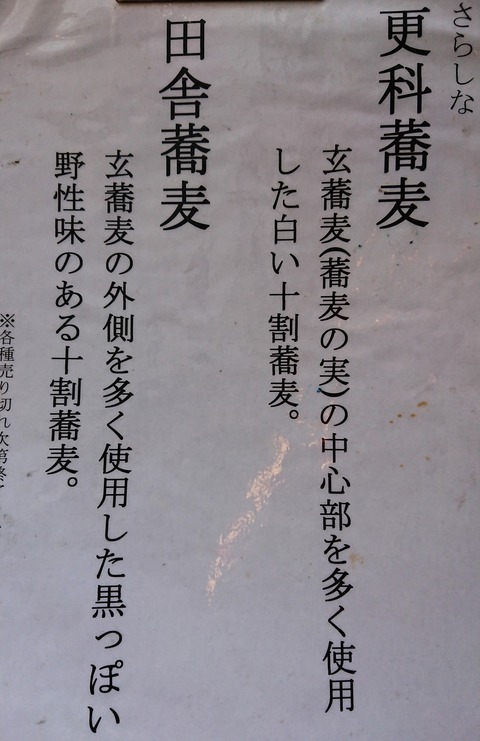 さらしな
更科蕎麦
玄蕎麦(蕎麦の実)の中心部を多く使用
した白い十割蕎麦。
田舎蕎麦
玄蕎麦の外側を多く使用した黒っぽい
野性味のある十割蕎麦。
※各種売り切れ次第終